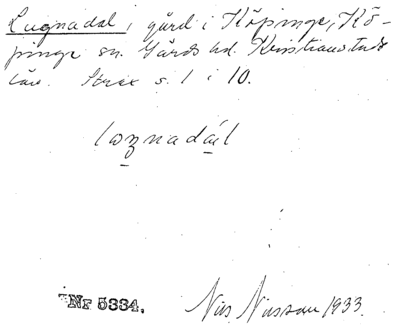 Lugnadal, gård i Köpinge, Kö-
pinge sn. Gärds hd. Kristianstads
län. Strax s. l i 10.
loznadál
Nr 5334. Nils Nilsson 1933.